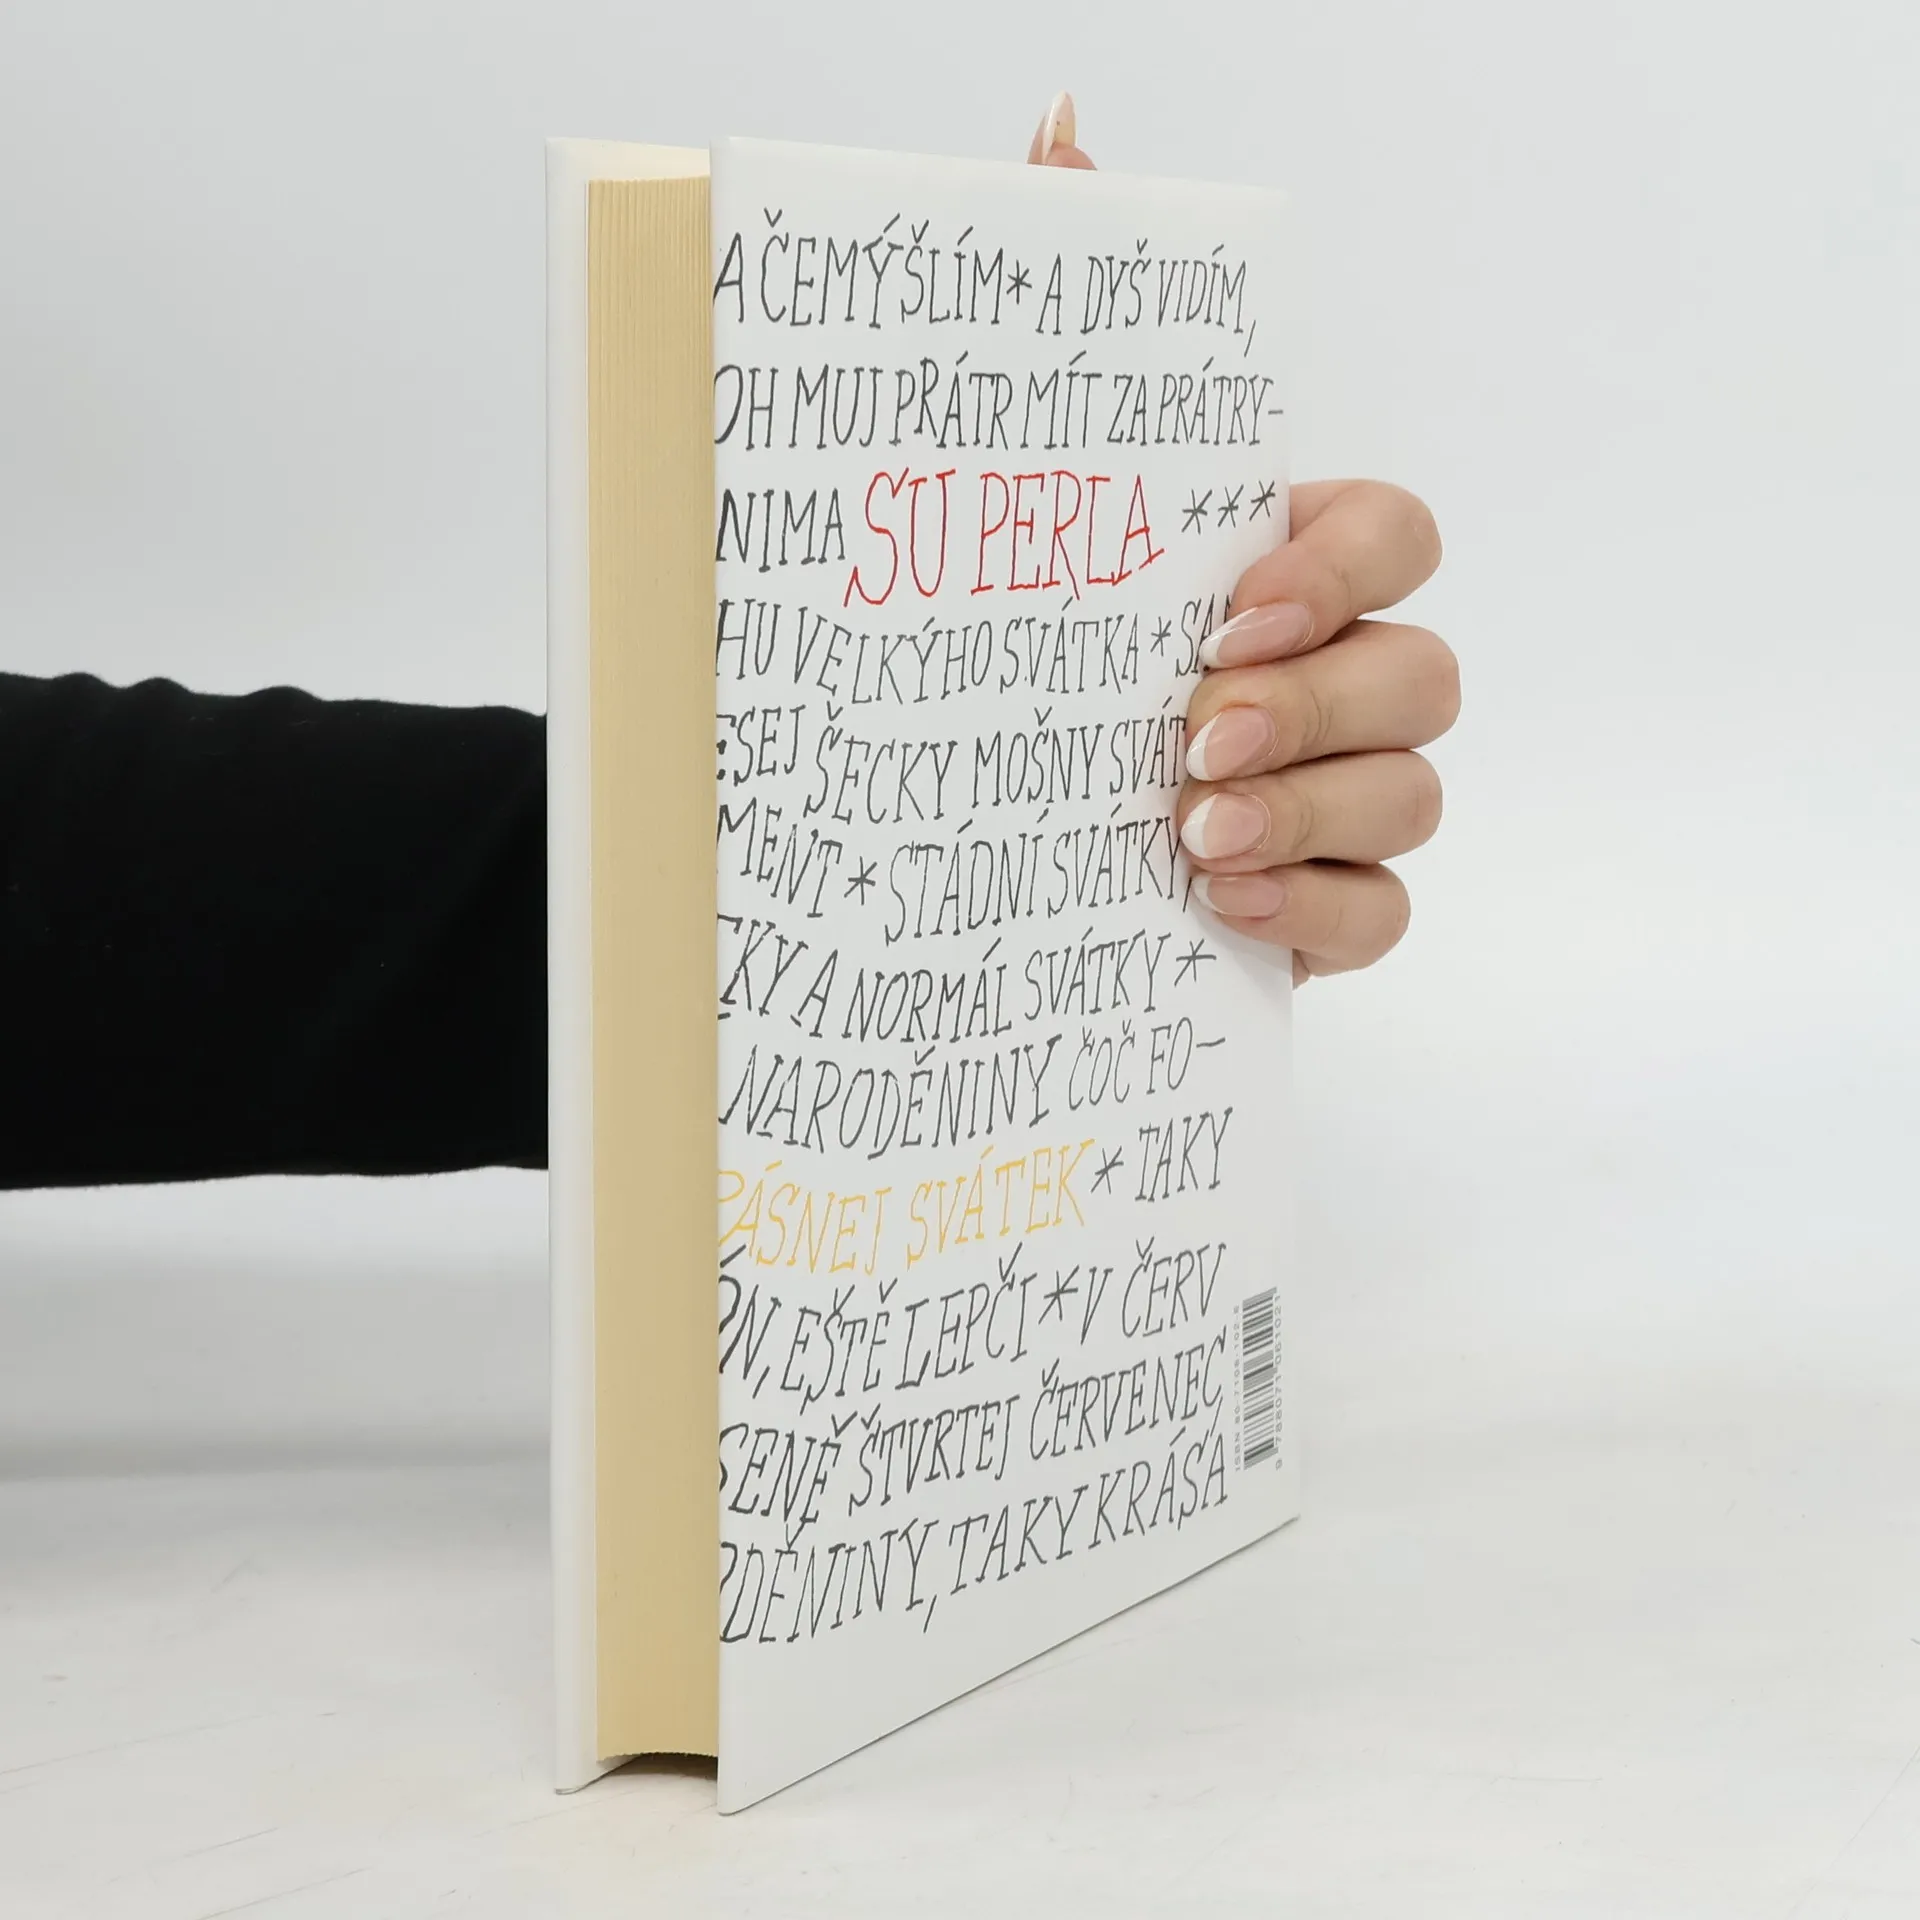 A ČEMÝŠLÍM * A DYŠ VIDÍM,
OH MUJ PŘÁTR MÍT ZA PRÁTRY-
NIMA SU PERLA ***
HU VELKÝHO SVÁTKA *
ESEJ ŠECKY MOŠNY SVÁT
MENT * STÁDNÍ SVÁTKY,
KY A NORMÁL SVÁTKY *
NARODĚNINY ČOČ FO-
PÁSNEJ SVÁTEK * TAKY
ÓN, EŠTĚ LEPČI * V ČERV
SENĚ ŠTVRTEJ ČERVENEC
DĚNINY, TAKY KRÁSA
ISBN 80-7106-102-8
9 788071 061021